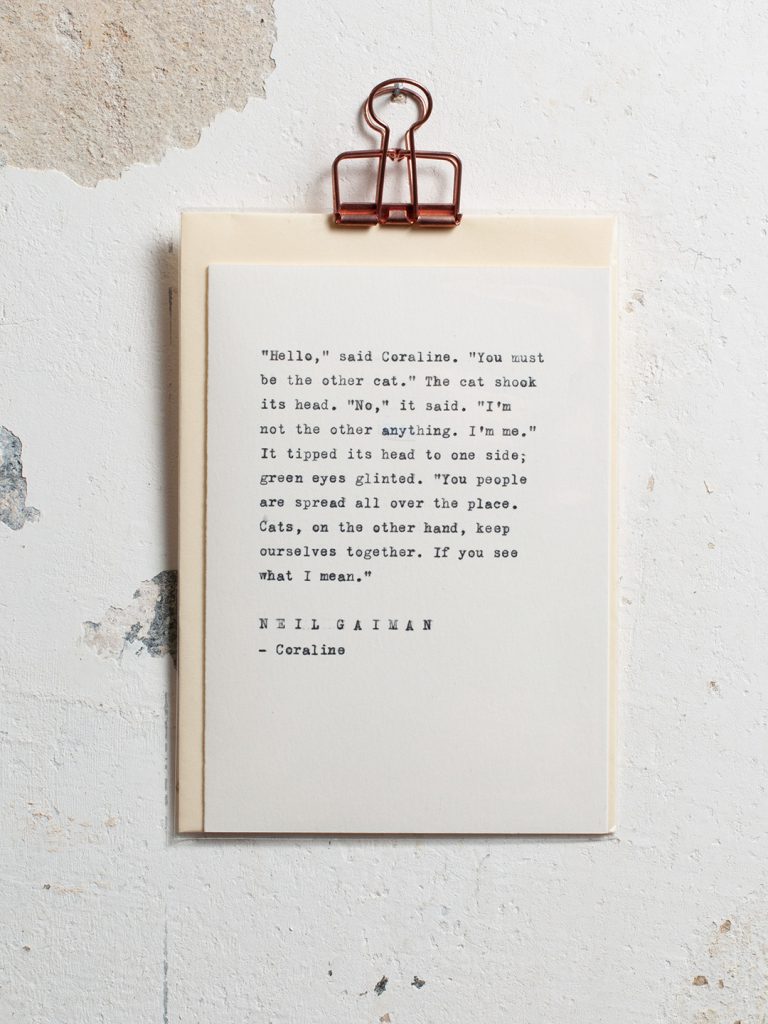 "Hello," said Coraline. "You must
be the other cat." The cat shook
its head. "No," it said. "I'm
not the other anything. I'm me."
It tipped its head to one side;
green eyes glinted. "You people
are spread all over the place.
Cats, on the other hand, keep
ourselves together. If you see
what I mean."
NEIL GAIMAN
- Coraline